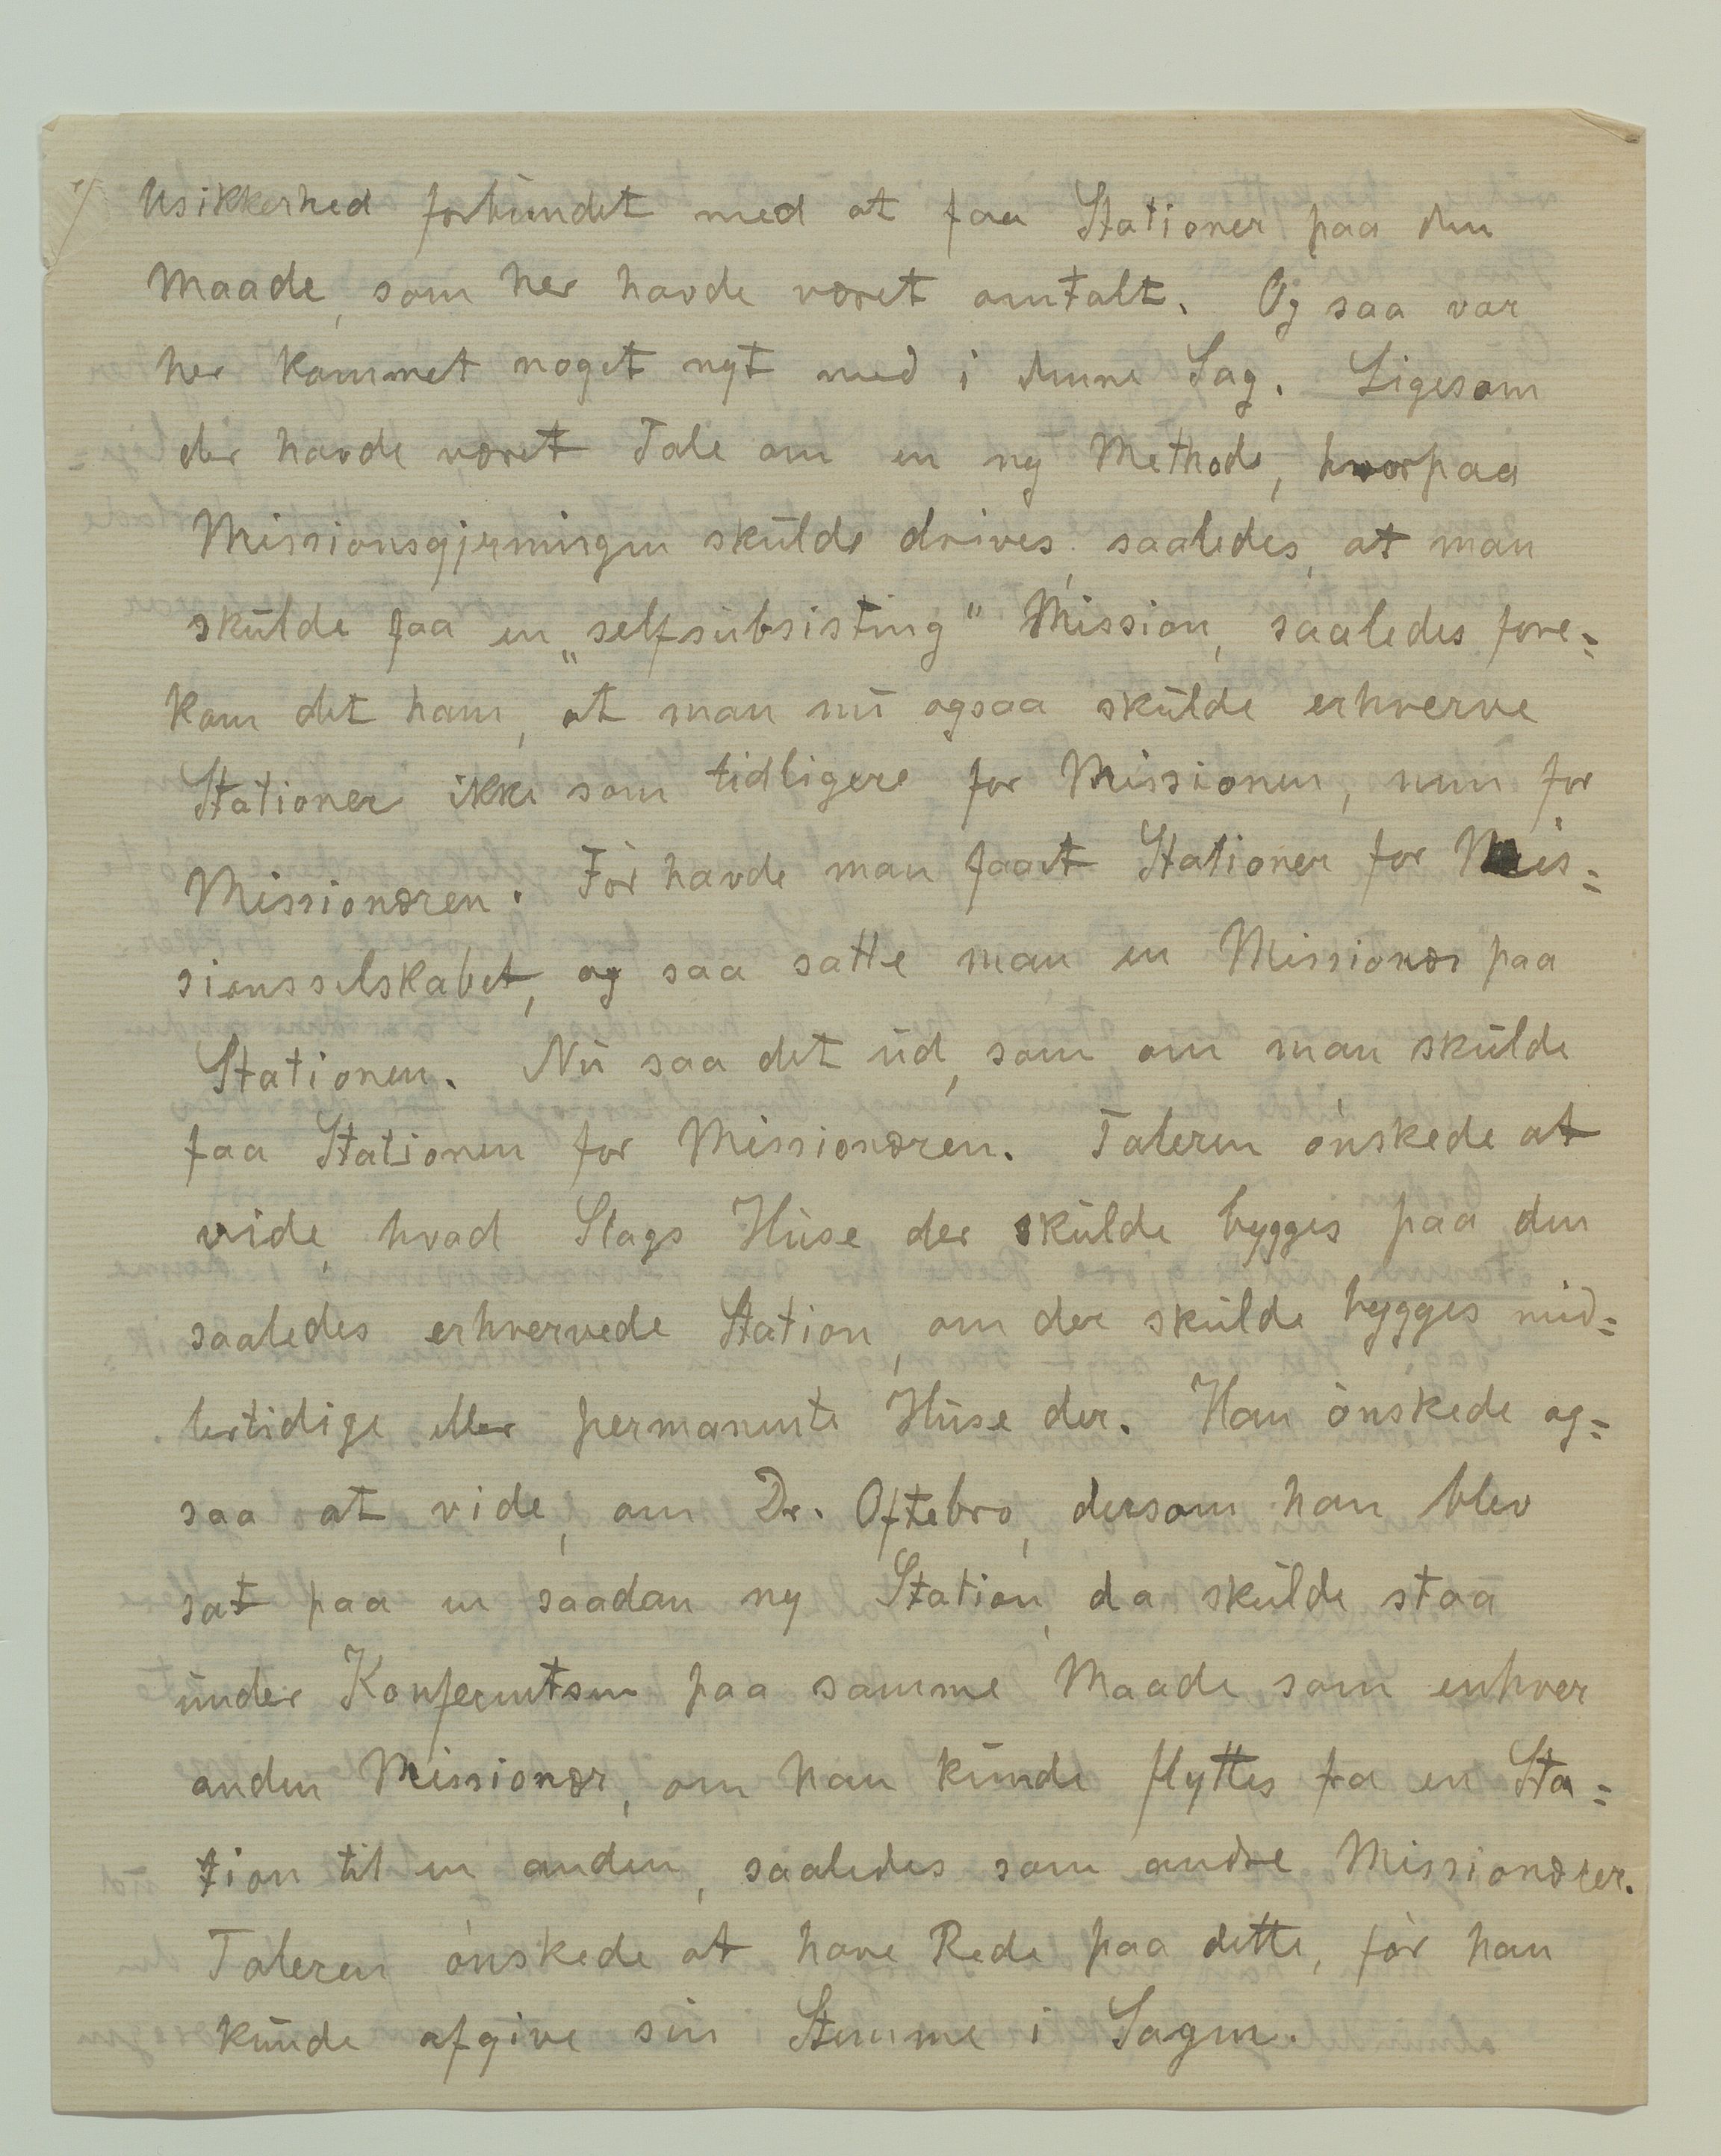 Usikkerhed forbundet med at faa Stationer paa den
Maade, som her havde været omtalt. Og saa var
her kommet noget nyt med i denne Sag. Ligesom
der havde været Tale om en ny Methode, hvorpaa
Missionsgjerningen skulde drives, saaledes, at man
skulde faa en „selfsubsisting" Mission, saaledes fore=
kom det ham, at man nu ogsaa skulde erhverve
Stationer ikke som tidligere for Missionen, men for
Missionæren. Før havde man faaet Stationer for Mis=
sionsselskabet, og saa satte man en Missionær paa
Stationen. Nu saa det ud, som om man skulde
faa Stationen for Missionæren. Taleren ønskede at
vide, hvad Slags Huse der skulde bygges paa den
saaledes erhvervede Station, om der skulde bygges mid=
lertidige eller permanente Huse der. Han ønskede og=
saa at vide, om Dr. Oftebro, dersom han blev
sat paa en saadan ny Station, da skulde staa
under Konferentsen paa samme Maade som enhver
anden Missionær, om han kunde flyttes fra en Sta=
tion til en anden, saaledes som andre Missionærer.
Taleren ønskede at have Rede paa dette, før han
kunde afgive sin Stemme i Sagen.